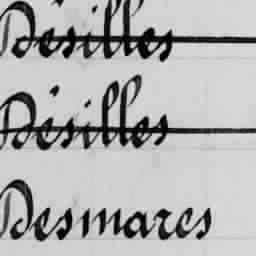 Désilles
Désilles
Desmares